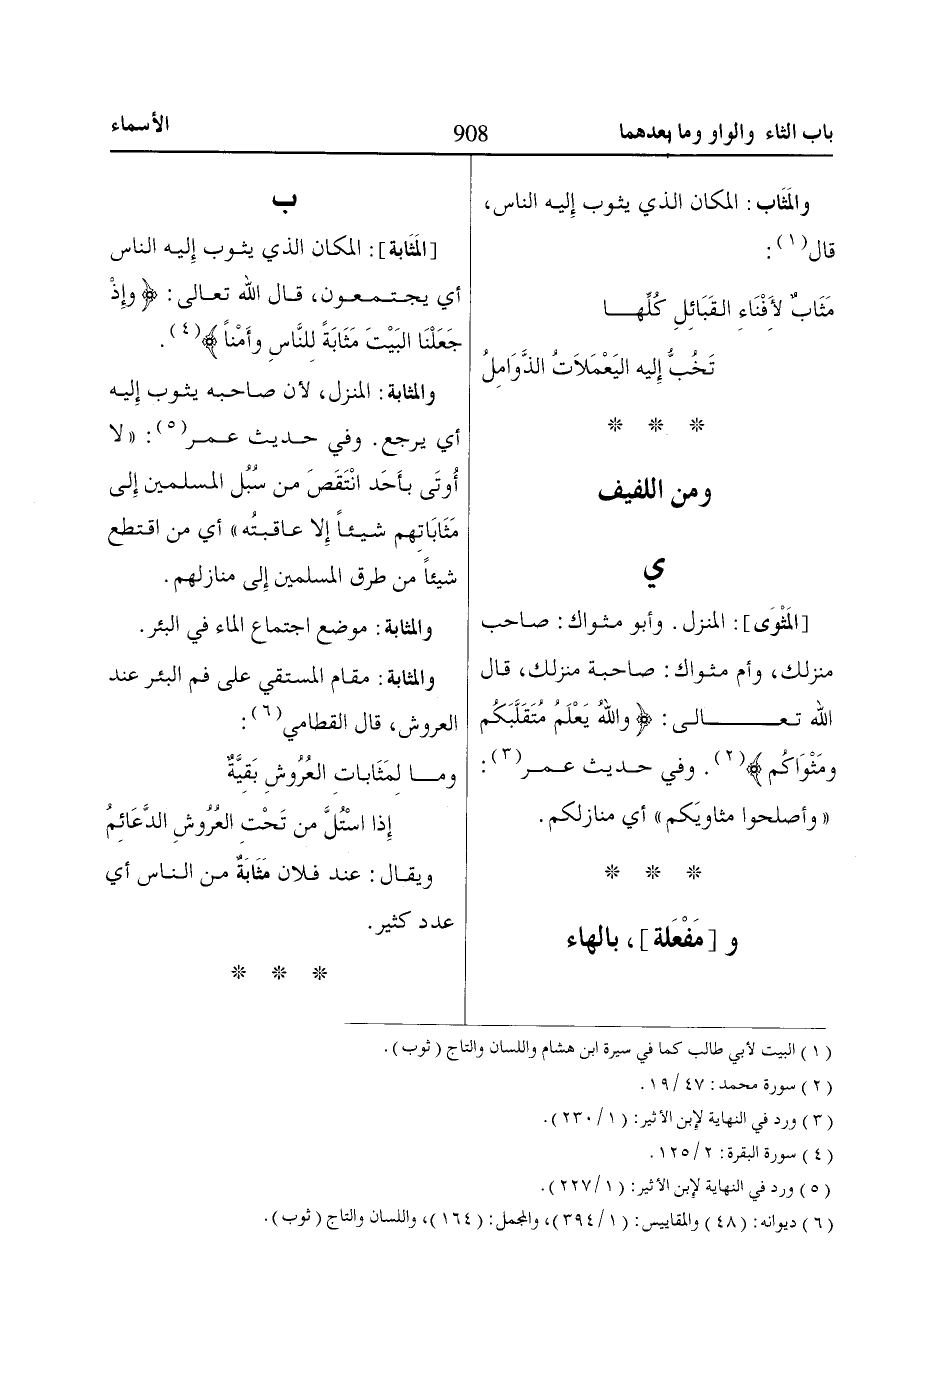 باب الثاء والواو وما بعدهما
908
الأسماء
والمَثَاب: المكان الذي يثوب إليه الناس،
قال(١):
مَثَابٌ لأَفْنَاءِ القَبَائلِ كُلِّهـا
تَخُبُّ إليه اليَعْمَلاَتُ الذَّوَامِلُ
* * *
ومن اللفيف
ي
[المَثْوَى]: المنزل. وأبو مثواك: صاحب
منزلك، وأم مثواك: صاحبة منزلك، قال
الله تعـالى: ﴿واللهُ يَعْلَمُ مُتَقَلَّبَكُم
ومَثْوَاكُم﴾(٢). وفي حديث عمر(٣):
«وأصلحوا مثاويَكم» أي منازلكم.
* * *
و [مَفْعلة]، بالهاء
ب
[المَثَابة]: المكان الذي يثوب إليه الناس
أي يجتمعون، قال الله تعالى: ﴿وإِذْ
جَعَلْنَا البَيْتَ مَثَابَةً للنَّاسِ وأَمْناً﴾(٤).
والمثابة: المنزل، لأن صاحبه يثوب إليه
أي يرجع. وفي حديث عمر(٥): «لا
أُوتَى بأَحَد انْتَقَصَ من سُبُل المسلمين إلى
مَثَابَاتهم شيئاً إلا عاقبتُه» أي من اقتطع
شيئاً من طرق المسلمين إلى منازلهم.
والمثابة: موضع اجتماع الماء في البئر.
والمثابة: مقام المستقي على فم البئر عند
العروش، قال القطامي(٦):
ومـا لمَثَابات العُرُوشِ بَقيَّةٌ
إذا اسْتُلَّ من تَحْت العُرُوشِ الدَّعَائمُ
ويقال: عند فلان مَثَابَةٌ من الناس أي
عدد كثير.
* * *
(١) البيت لأبي طالب كما في سيرة ابن هشام واللسان والتاج (ثوب).
(٢) سورة محمد: ٤٧/ ١٩.
(٣) ورد في النهاية لإبن الأثير: (١/ ٢٣٠).
(٤) سورة البقرة: ٢/ ١٢٥.
(٥) ورد في النهاية لإبن الأثير: (١/ ٢٢٧).
(٦) ديوانه: (٤٨) والمقاييس: (١/ ٣٩٤)، والمجمل: (١٦٤)، واللسان والتاج (ثوب).